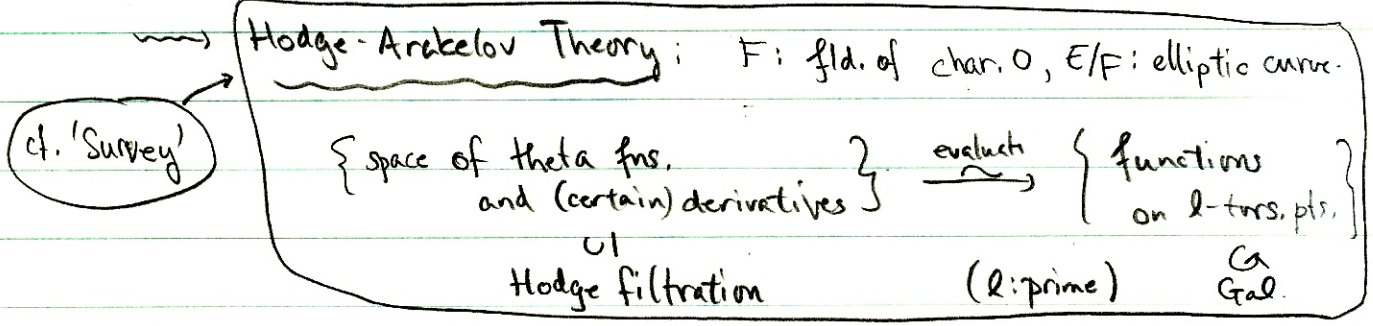 ⇝ Hodge-Arakelov Theory: F: fld. of char. 0, E/F: elliptic curve.
cf. 'Survey'
{ space of theta fns. and (certain) derivatives } evaluate ⥲ { functions on l-tors. pts. }
∪| ↷
Hodge filtration (l: prime) Gal.